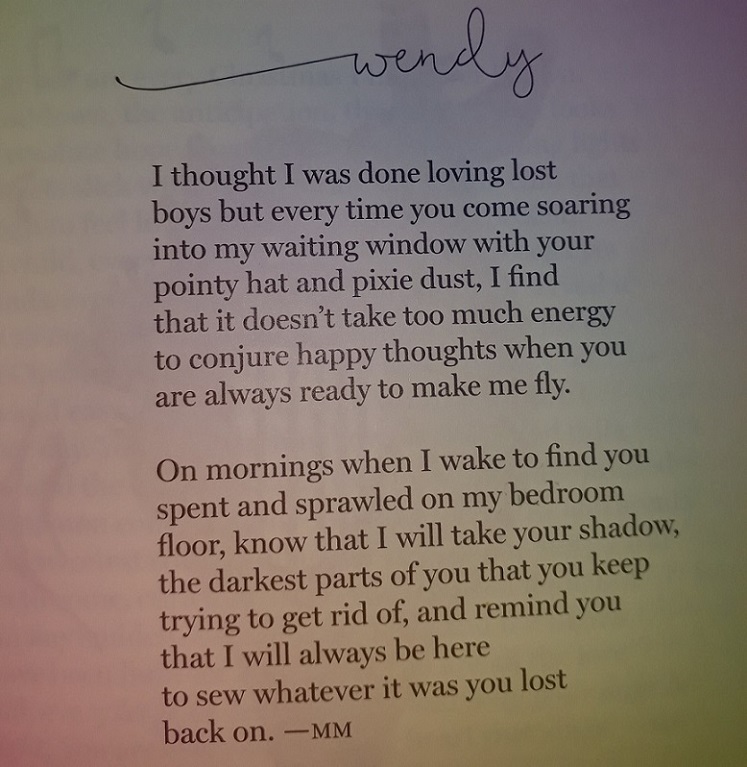 wendy
I thought I was done loving lost
boys but every time you come soaring
into my waiting window with your
pointy hat and pixie dust, I find
that it doesn’t take too much energy
to conjure happy thoughts when you
are always ready to make me fly.
On mornings when I wake to find you
spent and sprawled on my bedroom
floor, know that I will take your shadow,
the darkest parts of you that you keep
trying to get rid of, and remind you
that I will always be here
to sew whatever it was you lost
back on. —MM